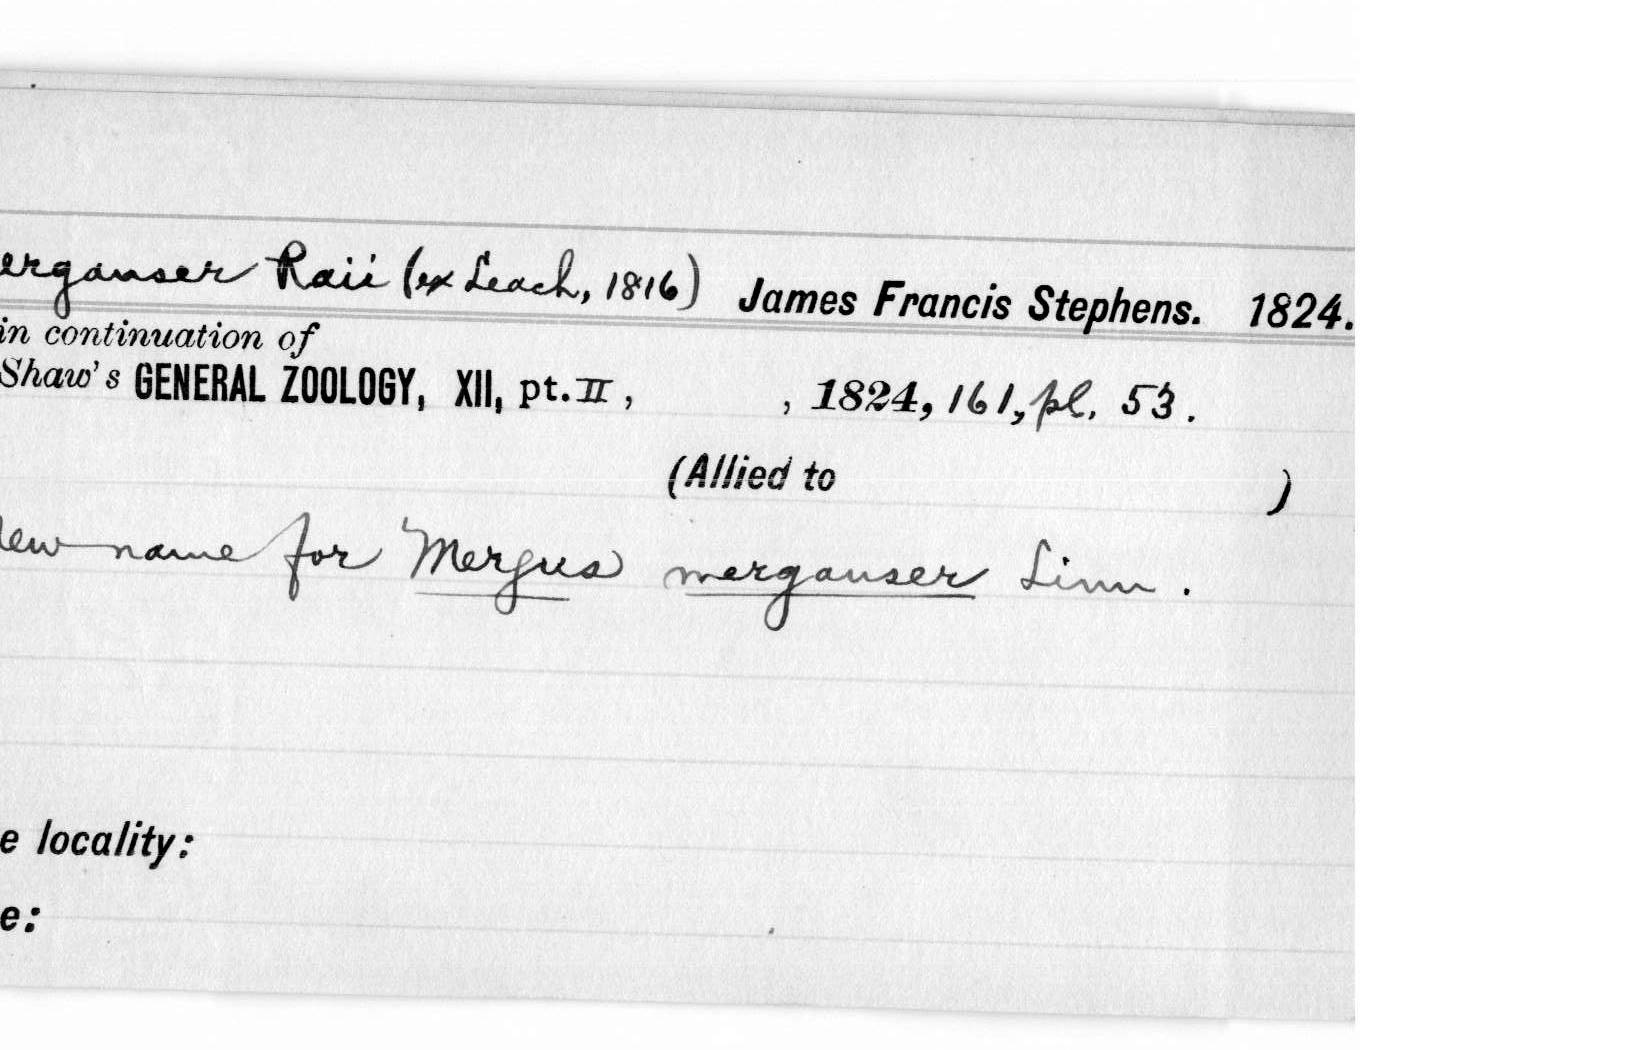 erganser Raii (ex Leach, 1816) James Francis Stephens. 1824.
in continuation of
Shaw's GENERAL ZOOLOGY, XII, pt. II, , 1824, 161, pl. 53.
(Allied to )
New name for Mergus merganser Linn.
e locality:
e: